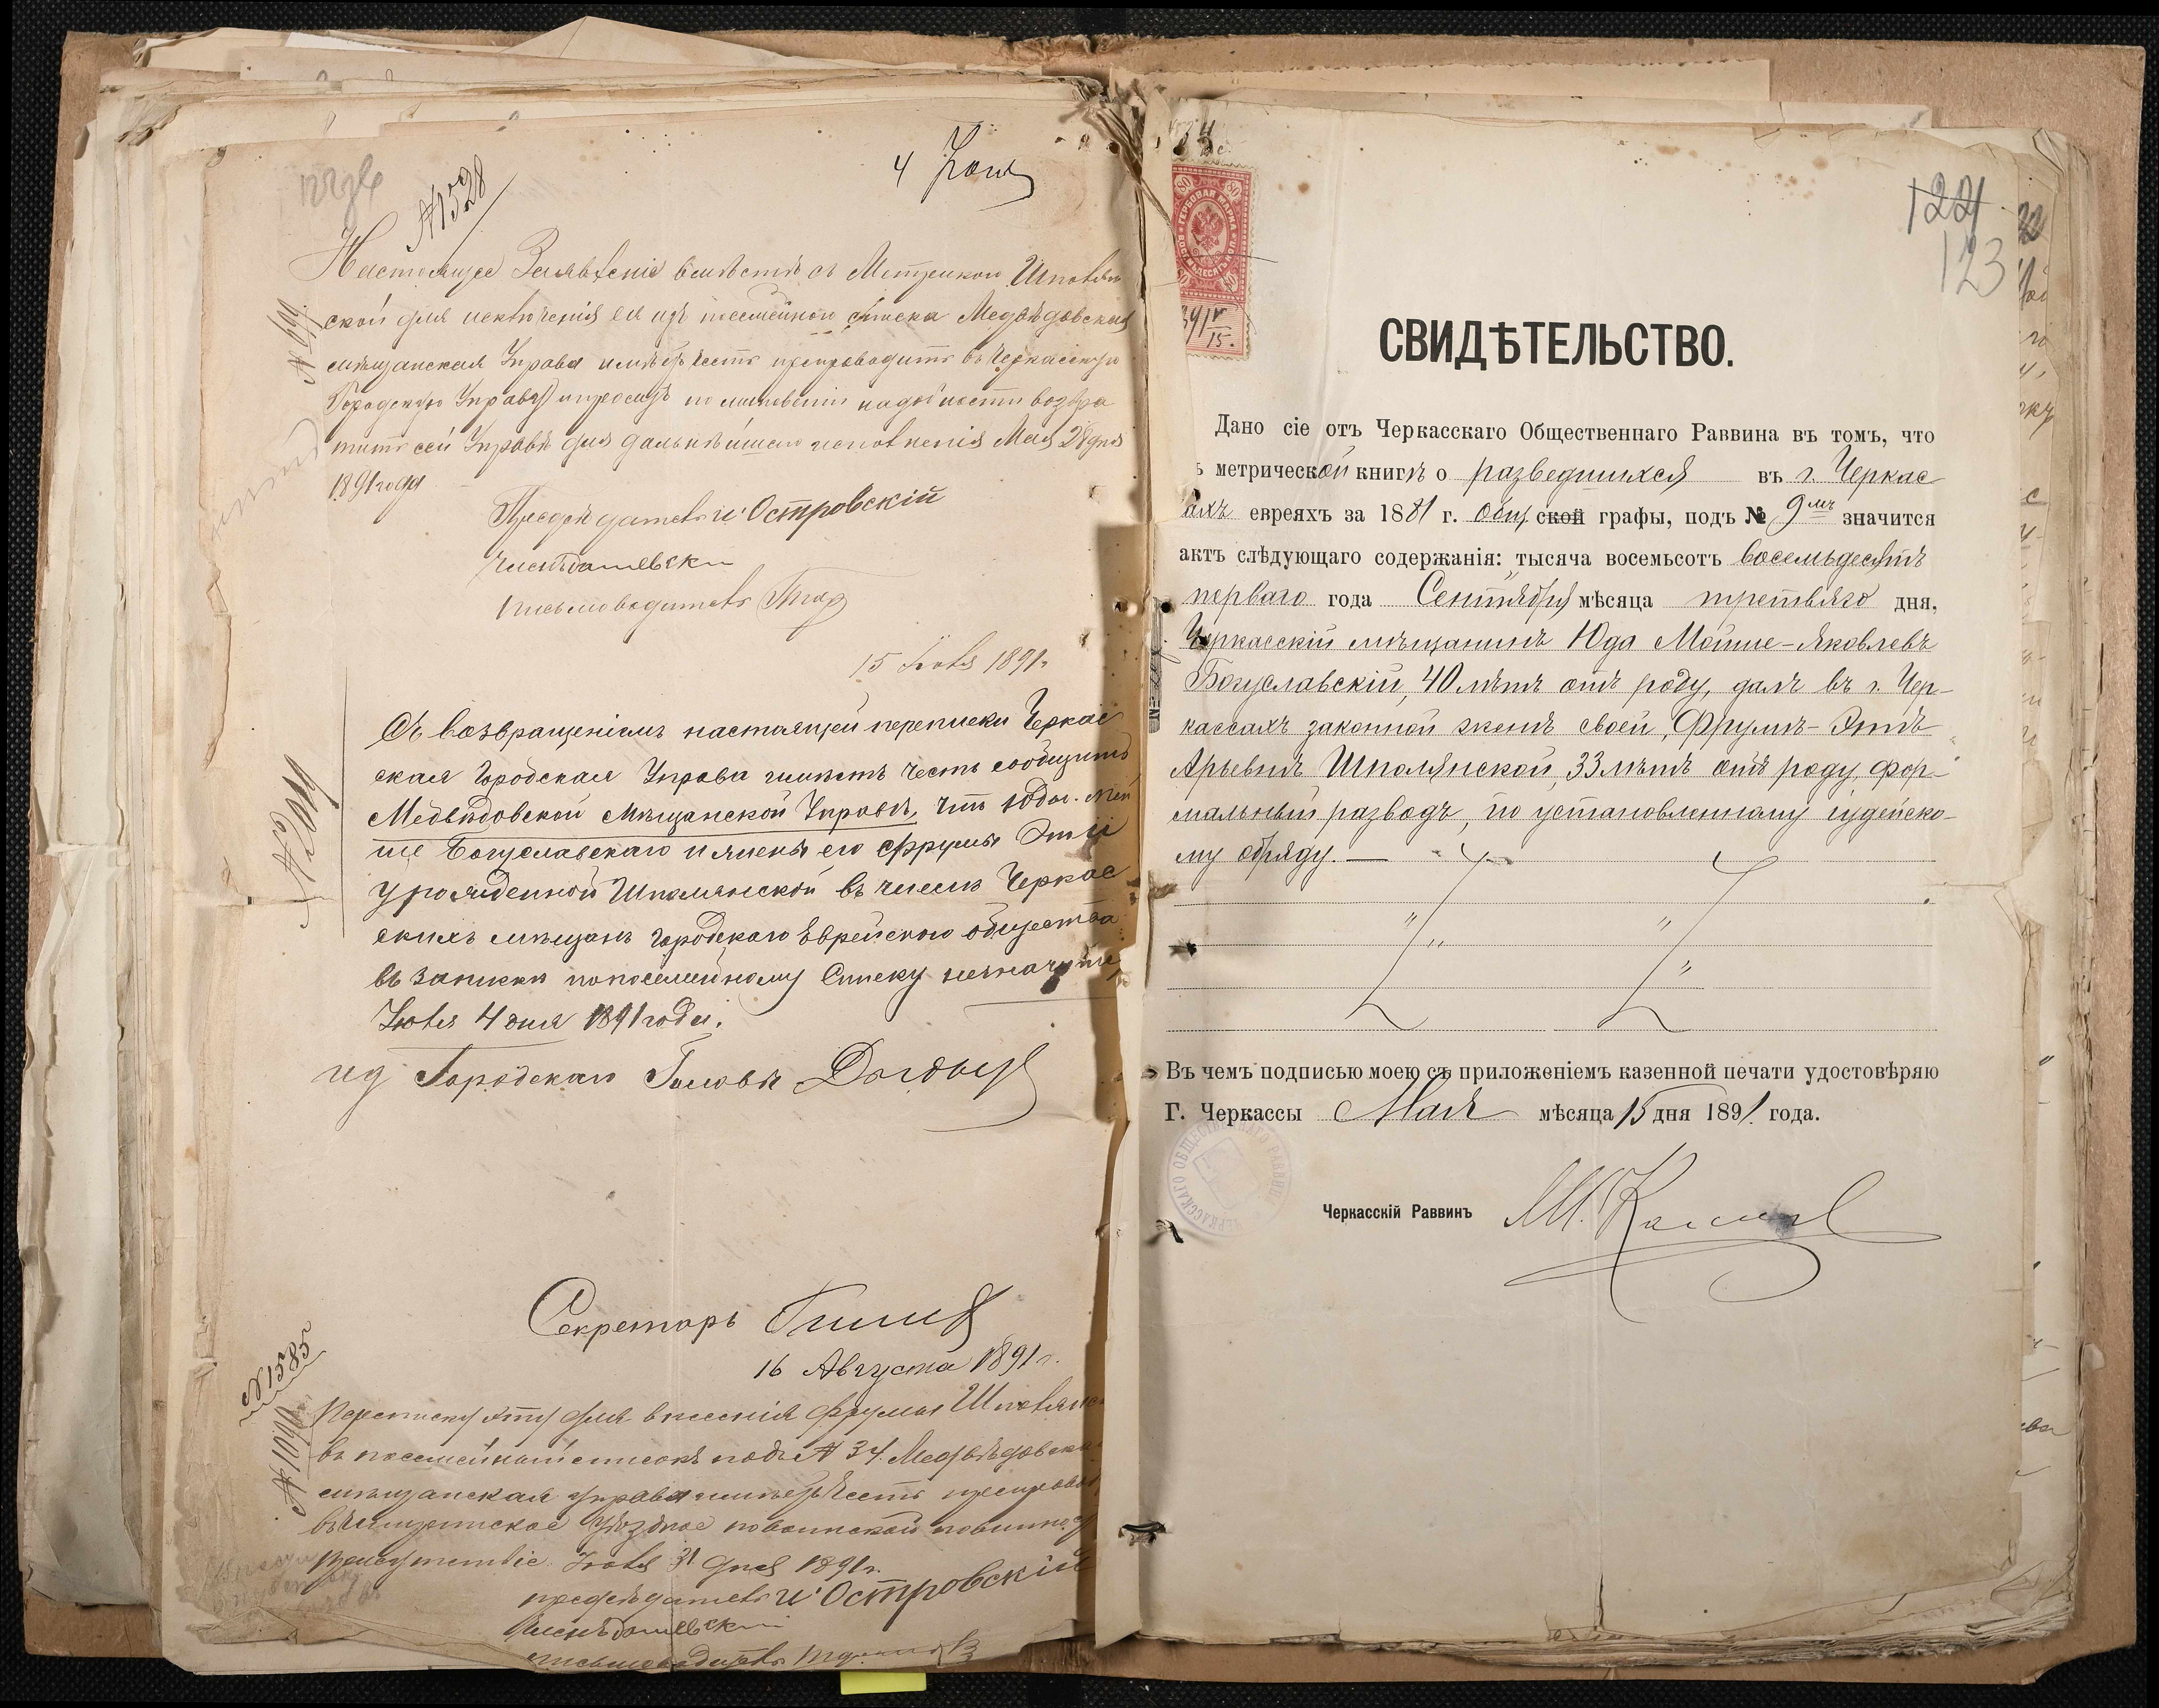 4 Іюня
№ 1528
Настоящее Заявленіе вмѣстѣ съ Метрикою Шполян
ской для исключенія ея изъ посемейнаго списка Медвѣдовская
№ 699
мѣщанская Управа имѣетъ честь препроводить въ Черкасскую
Городскую Управу и проситъ по миновеніи надобности возвра
тить сей Управѣ для дальнѣйшаго исполненія Мая 28 дня
1891 года
Предсѣдатель И Островскій
Членъ
Письмоводитель
15 Іюля 1891 г.
Съ возвращеніемъ настоящей переписки Черкас
ская Городская Управа имѣетъ честь сообщить
№ 2009
Медвѣдовской Мѣщанской Управѣ, что Юда Мой
ше Богуславскаго и жены его Фрумы Эти
урожденной Шполянской въ числѣ Черкас
скихъ мѣщанъ городскаго Еврейского общества
въ записки по посемейному Списку незначится
Іюля 4 дня 1891 года.
ид Городскаго Головы
Секретарь
16 Августа 1891 г.
№ 1585
Переписку эту для внесенія Фрумы Шполянс
№ 1090
въ посемейный списокъ подъ № 34. Медвѣдовская
мѣщанская управа имѣетъ честь препровод
въ Чигиринское Уѣздное по воинской повинно
Присутствіе. Іюля 31 дня 1891 г.
предсѣдатель И Островскій
Членъ
письмоводитель
80 80
ГЕРБОВАЯ МАРКА
ВОСЕМЬДЕСЯТЪ КОП.
80 80
891 V/15.
122
123
СВИДѢТЕЛЬСТВО.
Дано сіе отъ Черкасскаго Общественнаго Раввина въ томъ, что
ъ метрической книгѣ о разведшихся въ г. Черкас
ахъ евреяхъ за 1881 г. общ ской графы, подъ № 9мъ значится
актъ слѣдующаго содержанія: тысяча восемьсотъ восемьдесятъ
перваго года Сентября мѣсяца третьяго дня,
Черкасскій мѣщанинъ Юда Мойше-Яковлевъ
Богуславскій, 40 лѣтъ отъ роду, далъ въ г. Чер-
кассахъ законной женѣ своей, Фрумѣ-Этѣ
Арьевнѣ Шполянской, 33 лѣтъ отъ роду, фор-
мальный разводъ, по установленному іудейско-
му обряду. —
Въ чемъ подписью моею съ приложеніемъ казенной печати удостовѣряю
Г. Черкассы Мая мѣсяца 15 дня 1891. года.
ЧЕРКАССКАГО ОБЩЕСТВЕННАГО РАВВИНА
Черкасскій Раввинъ